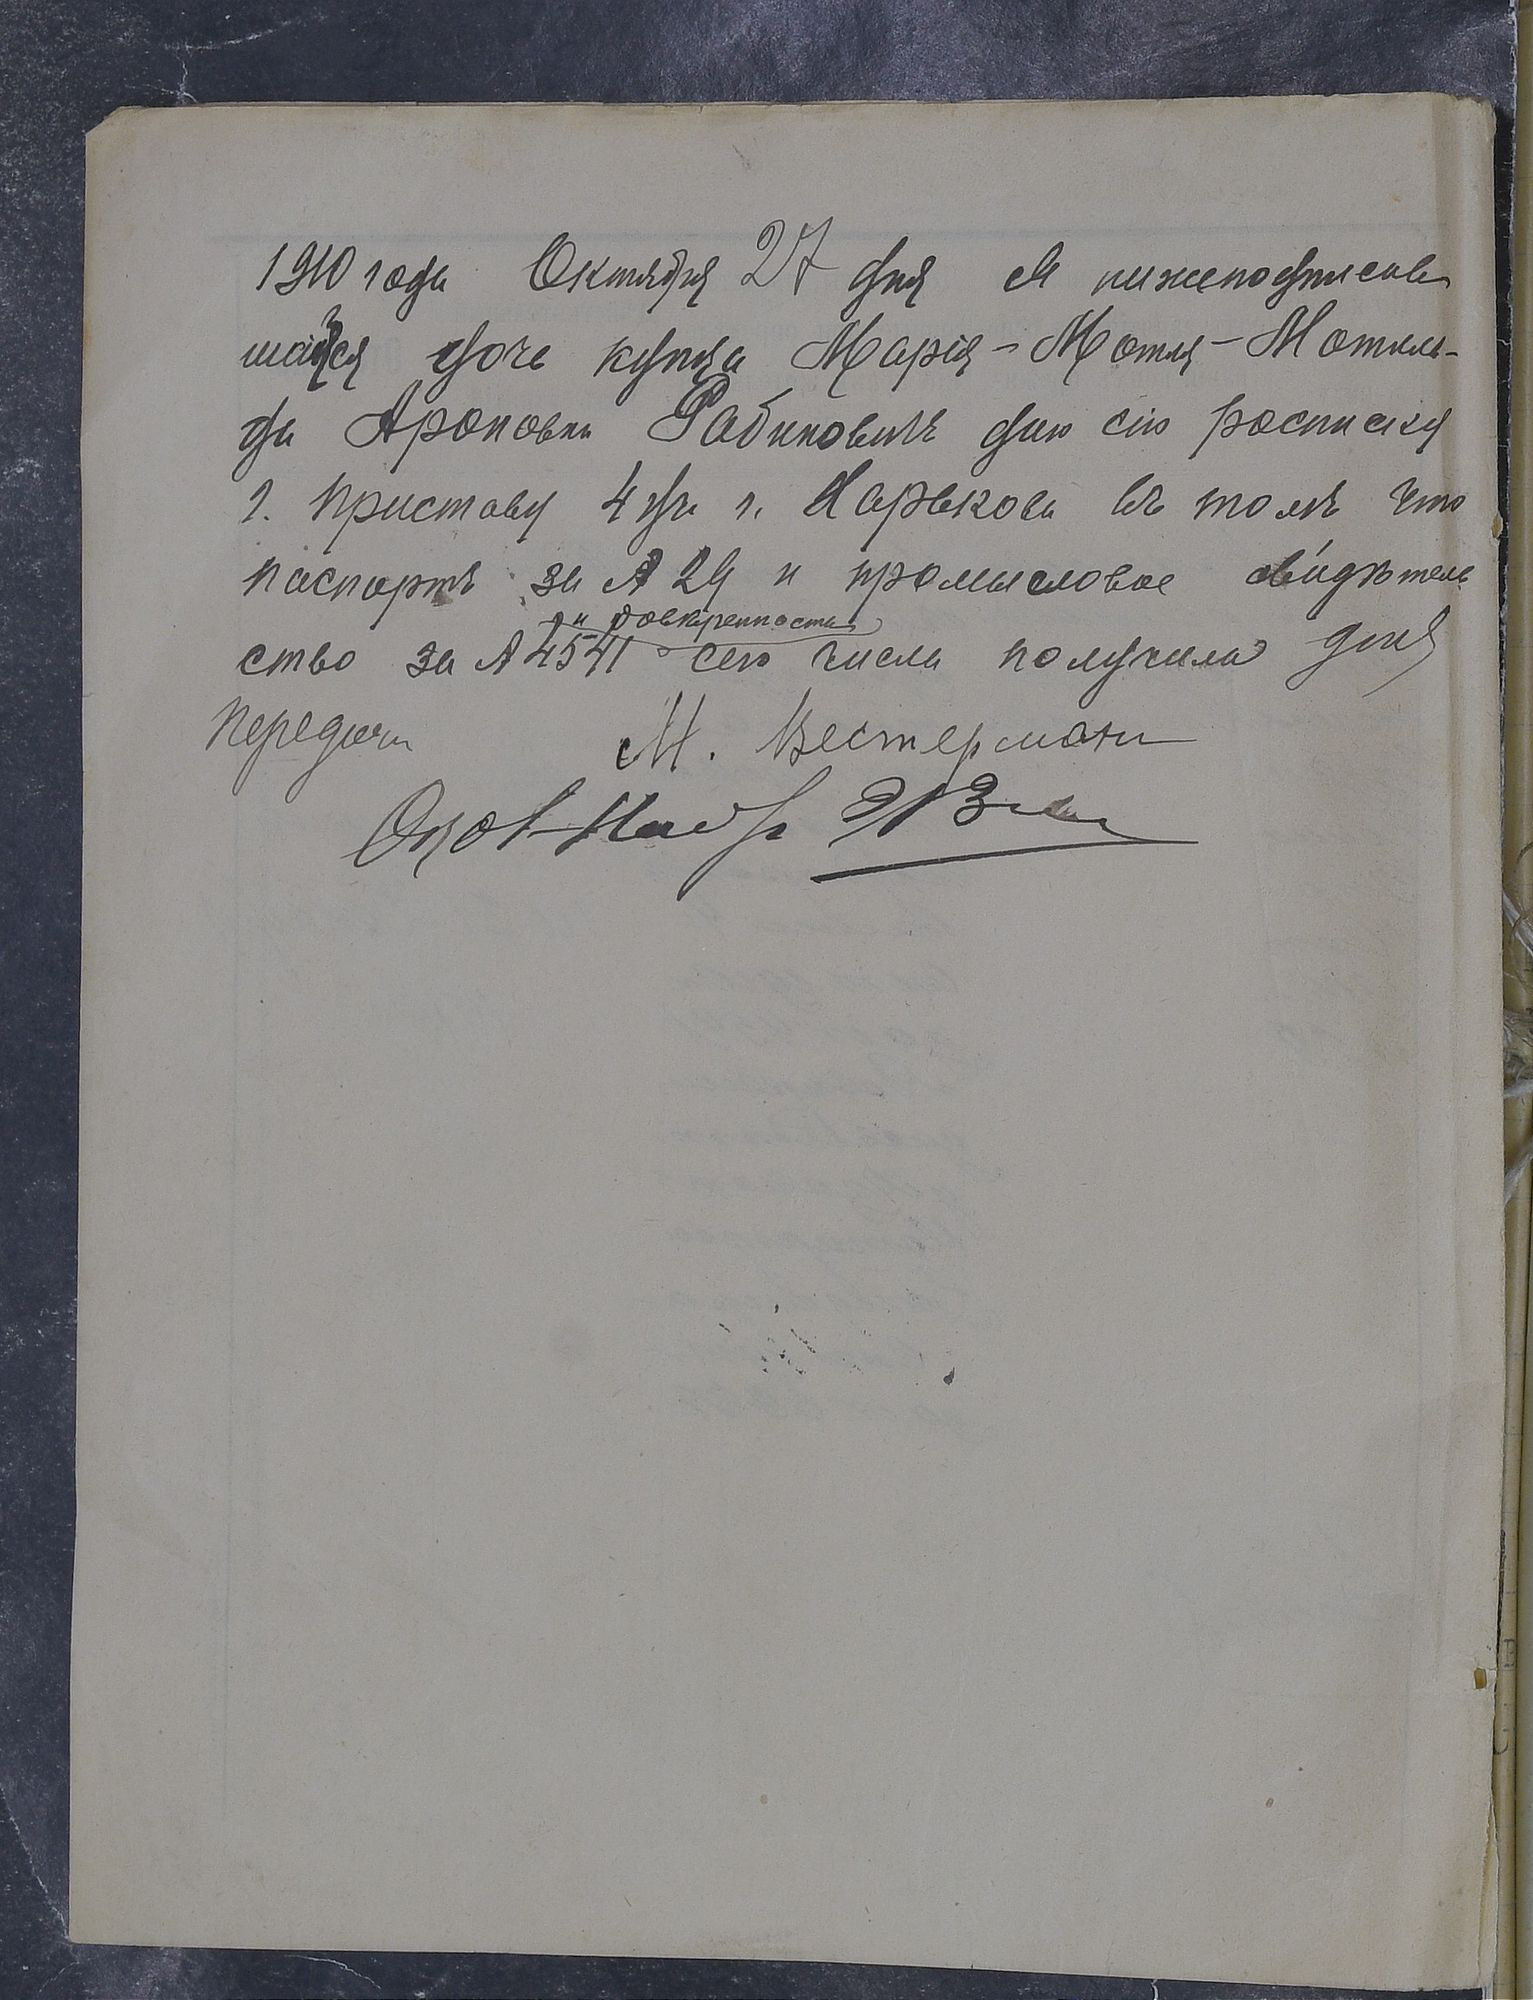 1910 года Октября 27 дня Я нижеподписав
шаяся дочь купца Марія-Мотля-Мотиль-
да Ароновна Рабиновичъ даю сію росписку
г. Приставу 4 уч. г. Харькова въ томъ что
паспортъ за № 29 и промысловое свидѣтель
и довѣренность
ство за № 4541 сего числа получила для
передачи М. Вестерманъ
Окол. Надз.